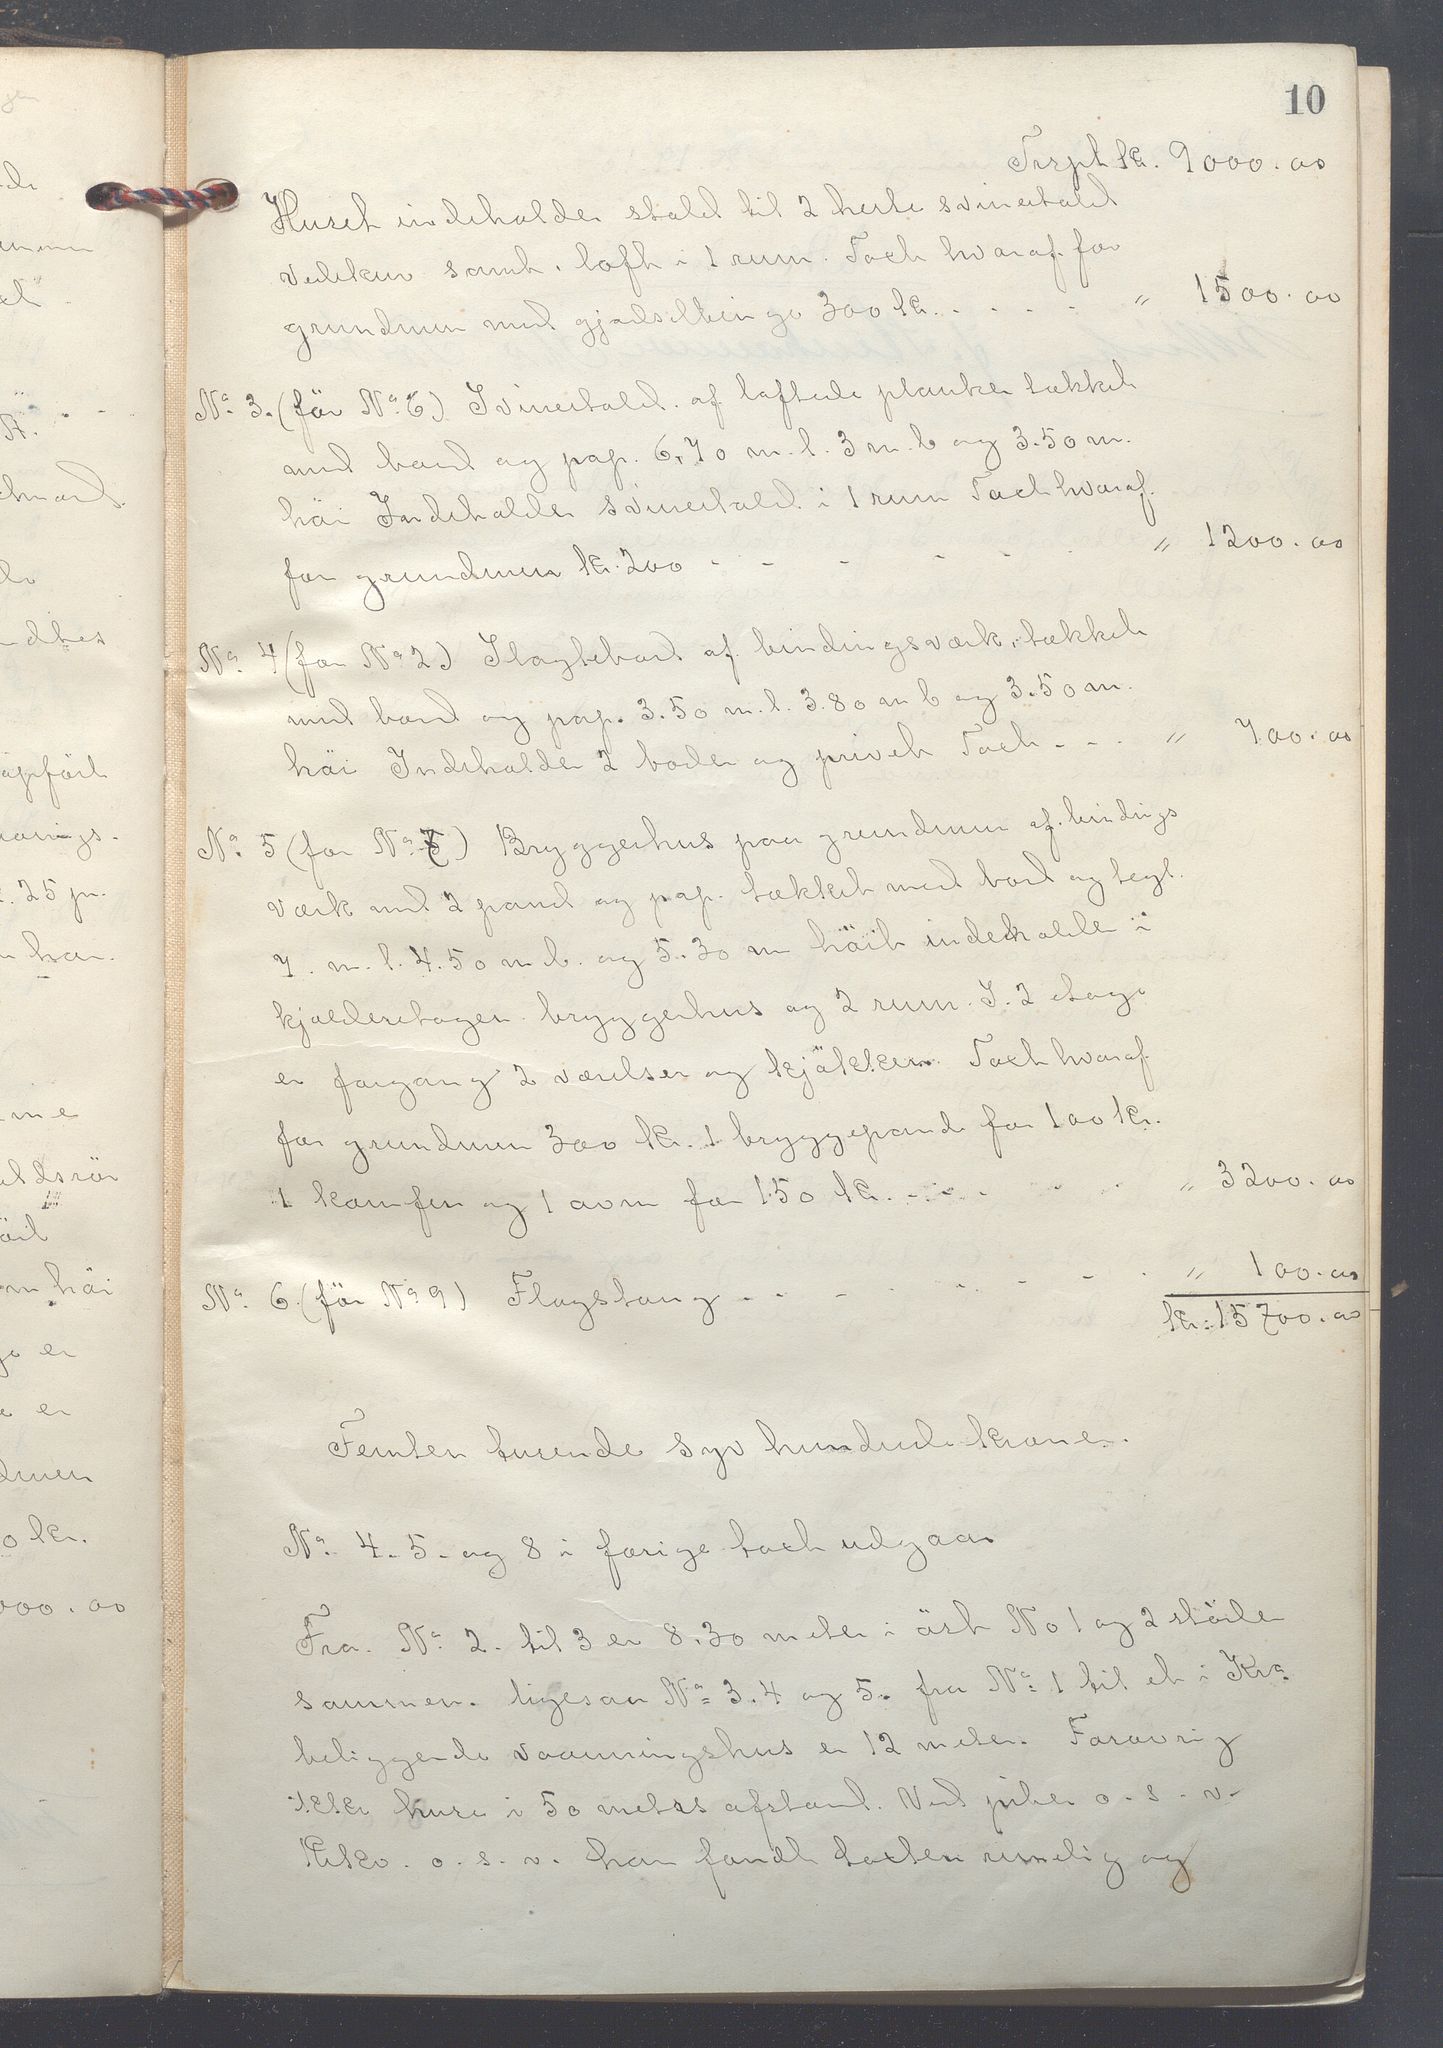 10
Trspt kr. 9000.00
Huset indeholder stald til 2 heste svinestald
vedskur samt loft i 1 rum. Taxt hvoraf for
grundmur med gjødselbinge 300 kr. . . . . " 1500.00
No. 3. (før No. 6) Svinestald af laftede planker tækket
med bord og pap. 6,70 m. l. 3 m. b og 3.50 m.
høi Indeholder svinestald i 1 rum Taxt hvoraf
for grundmur kr. 200 - - - - - - " 1200.00
No. 4 (før No. 2) Slagtebod af bindingsværk, tækket
med bord og pap. 3.50 m. l. 3.80 m b og 3.50 m.
høi Indeholder 2 boder og privet Taxt - - - " 700.00
No. 5 (før No. 7) Bryggerhus paa grundmur af bindings
værk med 2 panel og pap. tækket med bord og tegl.
7. m. l. 4.50 m b. og 5.30 m høit indeholder i
kjælderetagen bryggerhus og 2 rum. I. 2 etage
er forgang 2 værelser og kjøkken. Taxt hvoraf
for grundmur 300 kr. 1 bryggepande for 100 kr.
1 komfur og 1 ovn for 150 kr. - - - - - " 3200.00
No. 6. (før No 9) Flagstang - - - - - - - " 100.00
kr. 15700.00
Femten tusende syv hundrede kroner.
No. 4. 5. og 8 i forrige taxt udgaar
Fra No. 2. til 3 er 8.30 meter i øst No 1 og 2 støder
sammen. ligesaa No. 3. 4 og 5. fra No. 1 til et i
beliggende vaaningshus er 12 meter. Forøvrig
ikke huse i 50 meters afstand. Ved piber o. s. v.
o. s. v. han fandt taxten rimelig og